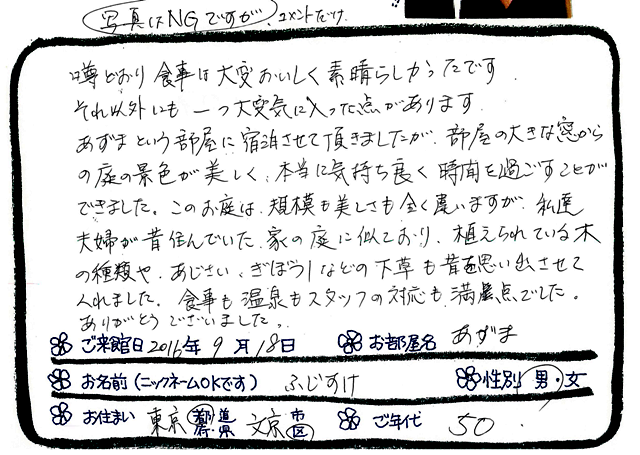 写真はNGですが、コメントだけ.
噂どおり食事は大変おいしく素晴らしかったです.
それ以外にも一つ大変気に入った点があります.
あずまという部屋に宿泊させて頂きましたが、部屋の大きな窓から
の庭の景色が美しく、本当に気持ち良く時間を過ごすことが
できました。このお庭は、規模も美しさも全く違いますが、私達
夫婦が昔住んでいた、家の庭に似ており、植えられている木
の種類や、あじさい、ぎぼうしなどの下草も昔を思い出させて
くれました。食事も温泉もスタッフの対応も満点でした。
ありがとうございました。
ご来館日 2016年 9月 18日 お部屋名 あずま
お名前(ニックネームOKです) ふじすけ 性別 男・女
お住まい 東京 都道府・県 文京 市区 ご年代 50.